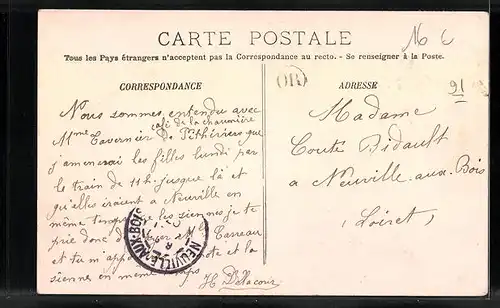 CARTE POSTALE
Tous les Pays étrangers n'acceptent pas la Correspondance au recto. - Se renseigner à la Poste.
N6 C
CORRESPONDANCE
OR
ADRESSE
91
Nous sommes entendu avec
café de la chaumière
Mme Tavernier de Pithiviers que
j'amenerai les filles lundi par
le train de 11h. jusque là et
qu'elles iraient a Neuville en
même temps que les siennes je te
prie donc de Mr Carreau
et tu m' note et la
sienne en même temps
H Delacour
Madame
Coute Bidault
a Neuville-aux-Bois
(Loiret)
NEUVILLE-AUX-BOIS